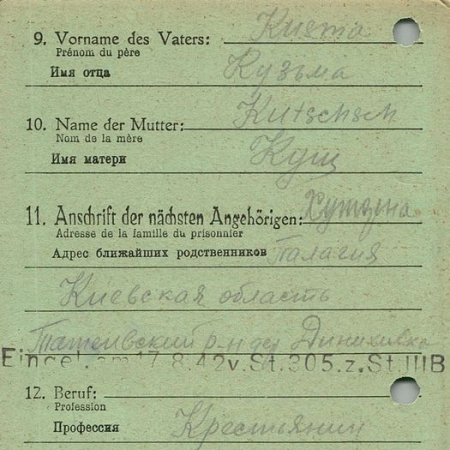 9. Vorname des Vaters: Kusma
Prénom du père
Имя отца Кузьма
10. Name der Mutter: Kutschsch
Nom de la mère
Имя матери Кущ
11. Anschrift der nächsten Angehörigen:
Adresse de la famille du prisonnier
Адрес ближайших родственников Палагия
Киевская область
р-н дер
Eingel. am 17.8.42 v. St. 305. z. St. III B
12. Beruf:
Profession
Профессия Крестьянин